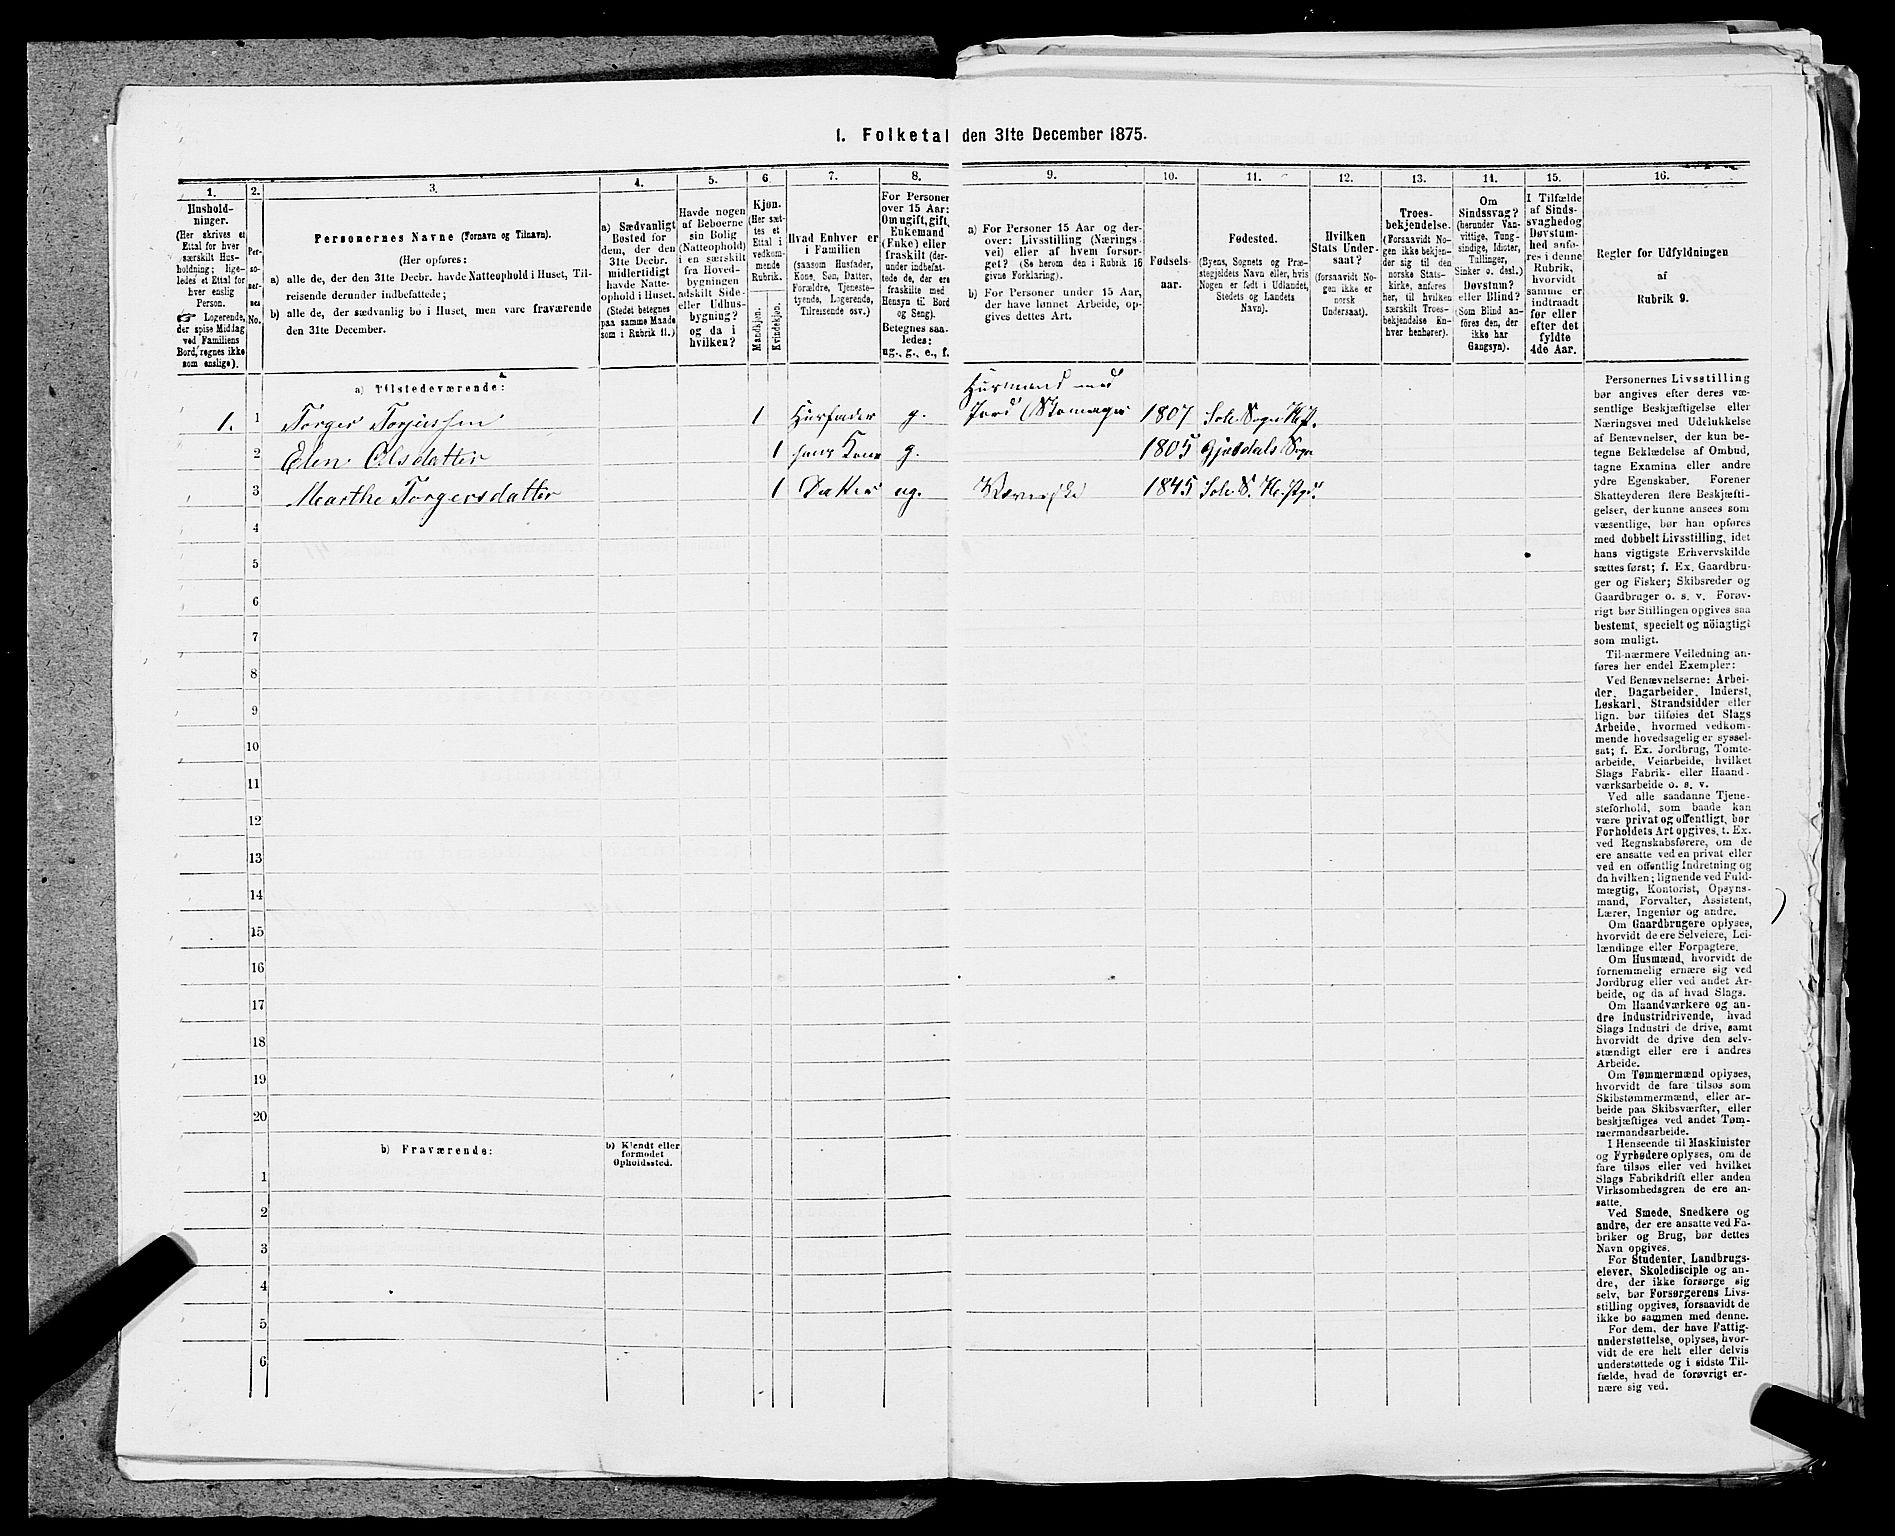 1. Folketal den 31te December 1875.
1. 2. 3. 4. 5. 6. 7. 8. 9. 10. 11. 12. 13. 14. 15. 16.
Hushold-
ninger.
(Her skrives et
Ettal for hver
særskilt Hus-
holdning; lige-
ledes et Ettal for
hver enslig
Person.
☞ Logerende,
der spise Middag
ved Familiens
Bord, regnes ikke
som enslige).
Per-
so-
ner-
nes
No.
Personernes Navne (Fornavn og Tilnavn).
(Her opføres:
a) alle de, der den 31te Decbr. havde Natteophold i Huset, Til-
reisende derunder indbefattede;
b) alle de, der sædvanlig bo i Huset, men vare fraværende
den 31te December.
a) Sædvanligt
Bosted for
dem, der den
31te Decbr.
midlertidigt
havde Natte-
ophold i Huset.
(Stedet betegnes
paa samme Maade
som i Rubrik 11.)
Havde nogen
af Beboerne
sin Bolig
(Natteophold)
i en særskilt
fra Hoved-
bygningen
adskilt Side-
eller Udhus-
bygning?
og da i
hvilken?
Kjøn.
(Her sæt-
tes et
Ettal i
vedkom-
mende
Rubrik.
Mandkjøn.
Kvindekjøn.
Hvad Enhver er
i Familien
(saasom Husfader,
Kone, Søn, Datter,
Forældre, Tjeneste-
tyende, Logerende,
Tilreisende osv.)
For Personer
over 15 Aar:
Om ugift, gift,
Enkemand
(Enke) eller
fraskilt (der-
under indbefat-
tede de, der ere
fraskilte med
Hensyn til Bord
og Seng).
Betegnes saa-
ledes:
ug., g., e., f.
a) For Personer 15 Aar og der-
over: Livsstilling (Nærings-
vei) eller af hvem forsør-
get? (Se herom den i Rubrik 16
givne Forklaring).
b) For Personer under 15 Aar,
der have lønnet Arbeide, op-
gives dettes Art.
Fødsels-
aar.
Fødested.
(Byens, Sognets og Præ-
stegjeldets Navn eller, hvis
Nogen er født i Udlandet,
Stedets og Landets
Navn).
Hvilken
Stats Under-
saat?
(forsaavidt No-
gen ikke er
norsk
Undersaat).
Troes-
bekjendelse.
(Forsaavidt No-
gen ikke bekjen-
der sig til den
norske Stats-
kirke, anføres
her, til hvilken
særskilt Troes-
bekjendelse En-
hver henhører).
Om
Sindssvag?
(herunder Van-
vittige, Tung-
sindige, Idioter,
Tullinger,
Sinker o. desl.)
Døvstum?
eller Blind?
(Som Blind an-
føres den, der
ikke har
Gangsyn).
I Tilfælde
af Sinds-
svaghed og
Døvstum-
hed anfø-
res i denne
Rubrik,
hvorvidt
samme er
indtraadt
før eller
efter det
fyldte
4de Aar.
Regler for Udfyldningen
af
Rubrik 9.
a) Tilstedeværende:
Husmand med
1. 1 Torger Torjussen 1 Husfader g. Jord 1807 Sole Sogn
2 Elen Olsdatter 1 hans Kone g. 1805 Gjæsdals Sogn
3 Marthe Torgersdatter 1 Datter ug. Væverske 1845 Sole S.
4
5
6
7
8
9
10
11
12
13
14
15
16
17
18
19
20
b) Fraværende:
b) Kjendt eller
formodet
Opholdssted.
1
2
3
4
5
6
Personernes Livsstilling
bør angives efter deres væ-
sentlige Beskjæftigelse eller
Næringsvei med Udelukkelse
af Benævnelser, der kun be-
tegne Beklædelse af Ombud,
tagne Examina eller andre
ydre Egenskaber. Forener
Skatteyderen flere Beskjæfti-
gelser, der kunne ansees som
væsentlige, bør han opføres
med dobbelt Livsstilling, idet
hans vigtigste Erhvervskilde
sættes først; f. Ex. Gaardbru-
ger og Fisker; Skibsreder og
Gaardbruger o. s. v. Forøv-
rigt bør Stillingen opgives saa
bestemt, specielt og nöiagtigt
som muligt.
Til nærmere Veiledning an-
føres her endel Exempler:
Ved Benævnelserne: Arbei-
der, Dagarbeider, Inderst,
Løskarl, Strandsidder eller
lign. bør tilføies det Slags
Arbeide, hvormed vedkom-
mende hovedsagelig er syssel-
sat; f. Ex. Jordbrug, Tomte-
arbeide, Veiarbeide, hvilket
Slags Fabrik- eller Haand-
værksarbeide o. s. v.
Ved alle saadanne Tjene-
steforhold, som baade kan
være privat og offentligt, bør
Forholdets Art opgives, t. Ex.
ved Regnskabsførere, om de
ere ansatte ved en privat eller
ved en offentlig Indretning og
da hvilken; lignende ved Fuld-
mægtig, Kontorist, Opsyns-
mand, Forvalter, Assistent,
Lærer, Ingeniør og andre.
Om Gaardbrugere oplyses,
hvorvidt de ere Selveiere, Lei-
lændinge eller Forpagtere.
Om Husmænd, hvorvidt de
fornemmelig ernære sig ved
Jordbrug eller ved andet Ar-
beide, og da af hvad Slags.
Om Haandværkere og an-
dre Industridrivende, hvad
Slags Industri de drive, samt
hvorvidt de drive den selv-
stændigt eller ere i andres
Arbeide.
Om Tømmermænd oplyses,
hvorvidt de fare tilsøs som
Skibstømmermænd, eller ar-
beide paa Skibsværfter, eller
beskjæftiges ved andet Tøm-
mermandsarbeide.
I Henseende til Maskinister
og Fyrbødere oplyses, om de
fare tilsøs eller ved hvilket
Slags Fabrikdrift eller anden
Virksomhedsgren de ere an-
satte.
Ved Smede, Snedkere og
andre, der ere ansatte ved Fa-
briker og Brug, bør dettes
Navn opgives.
For Studenter, Landbrugs-
elever, Skoledisciple og an-
dre, der ikke forsørge sig
selv, bør Forsørgerens Livs-
stilling opgives, forsaavidt de
ikke bo sammen med denne.
For dem, der have Fattig-
understøttelse, oplyses, hvor-
vidt de ere helt eller delvis
understøttede og i sidste Til-
fælde, hvad de forøvrigt er-
nære sig ved.